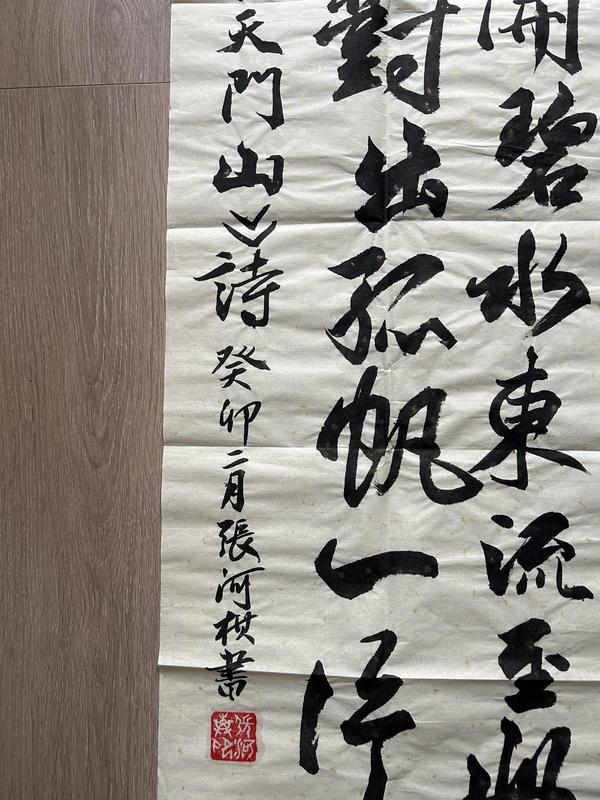 開碧水東流至此
對出孤帆一片
天門山詩癸卯二月張河棋書